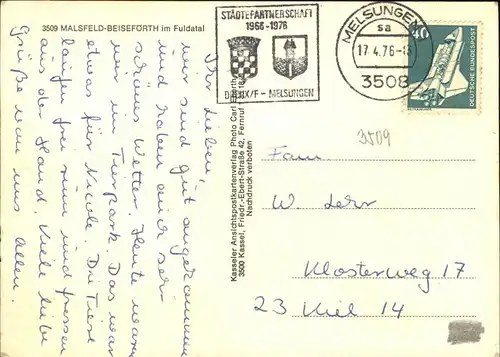 3509 MALSFELD-BEISEFORTH im Fuldatal
STÄDTEPARTNERSCHAFT
1966-1976
DREUX/F - MELSUNGEN
MELSUNGEN
sa
17.4.76-13
3508
40
DEUTSCHE BUNDESPOST
3509
Ihr Lieben!
wir sind gut angekommen
und haben auch sehr
schönes Wetter. Heute waren
wir im Tierpark. Das war
etwas für Nicole. Die Tiere
laufen frei rum und fressen
aus der Hand. Viele liebe
Grüße von uns allen.
Kasseler Ansichtspostkartenverlag Photo Carl Eberth
3500 Kassel, Friedr.-Ebert-Straße 42, Fernruf
Nachdruck verboten
Fam.
W.
Klosterweg 17
23 Kiel 14